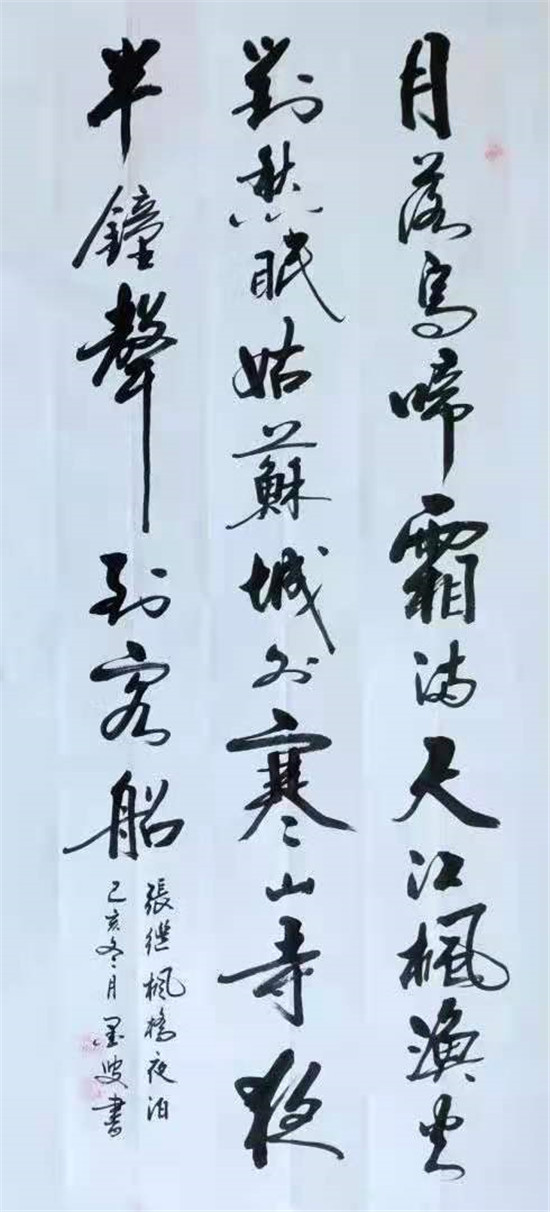 月落烏啼霜满天江楓漁火
對愁眠姑蘇城外寒山寺夜
半鐘聲到客船
張继楓橋夜泊
己亥冬月墨叟書